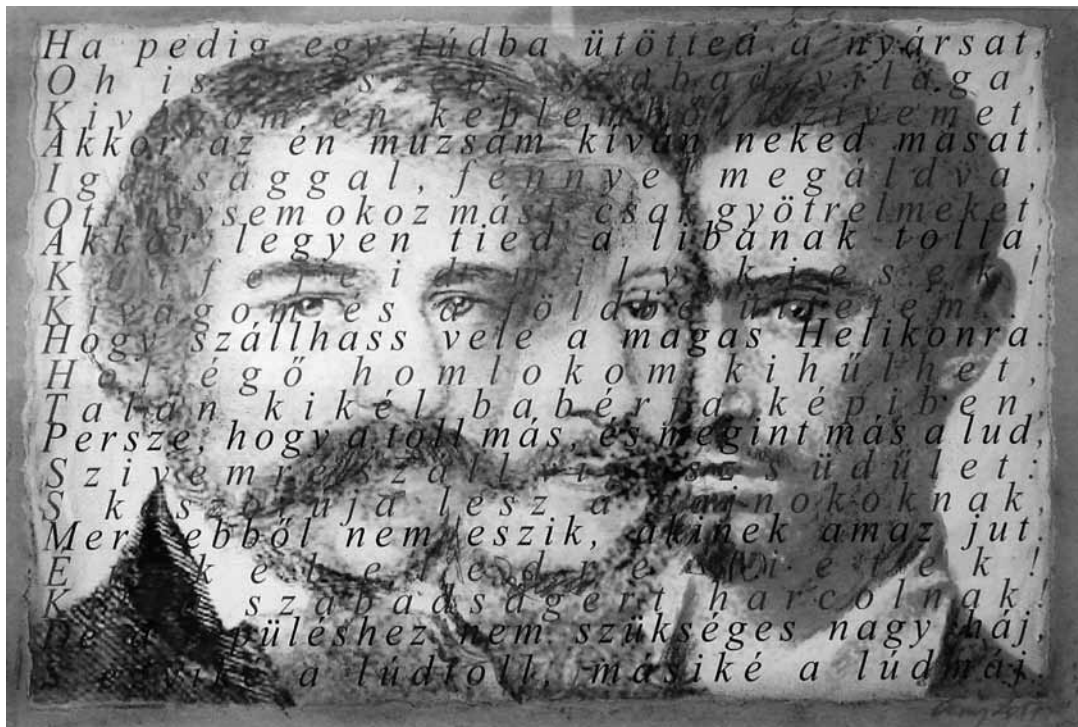 Ha pedig egy lúdba ütötted a nyársat,
Oh szép szabad világa,
Kivágom én keblemből szívemet,
Akkor az én muzsám kiván neked mását.
Igazsággal, fénnyel megáldva,
Ott úgysem okoz mást, csak gyötrelmeket,
Akkor legyen tied a libának tolla,
mily kiesek!
Kivágom és a földbe ültetem...
Hogy szállhass vele a magas Helikonra.
Hol égő homlokom kihűlhet,
Talán kikél babérfa képiben,
Persze, hogy a toll más, és megint más a lud,
Szivemre száll üdület:
S koszoruja lesz a bajnokoknak,
Mert ebből nem eszik, akinek amaz jut.
Kik a szabadságért harcolnak!
De a repüléshez nem szükséges nagy háj,
S egyiké a lúdtoll, másiké a lúdmáj.